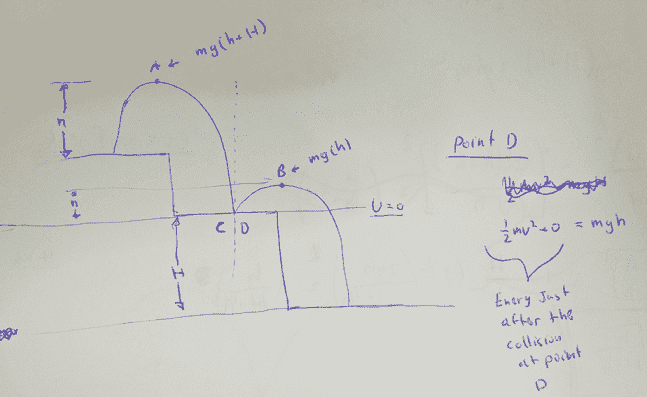 A ← mg(h+H)
h
B ← mg(h)
h
U=0
C D
H
Point D
½mv²+0 = mgh
Energy Just
after the
collision
at point
D